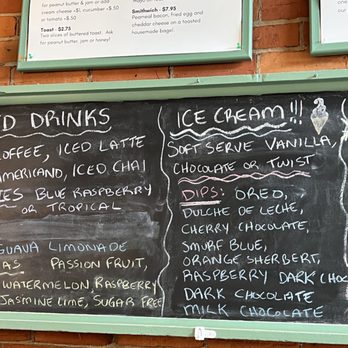 for peanut butter & jam or add
cream cheese +$1, cucumber +$.50
or tomato +$.50
Toast - $2.75
Two slices of buttered toast. Ask
for peanut butter, jam or honey!
Smithwich - $7.95
Peameal bacon, fried egg and
cheddar cheese on a toasted
housemade bagel!
D DRINKS
OFFEE, ICED LATTE
MERICANO, ICED CHAI
IES BLUE RASPBERRY
OR TROPICAL
GUAVA LIMONADE
AS PASSION FRUIT,
WATERMELON, RASPBERRY
JASMINE LIME, SUGAR FREE
ICE CREAM!!!
SOFT SERVE VANILLA,
CHOCOLATE OR TWIST
DIPS: OREO,
DULCHE DE LECHE,
CHERRY CHOCOLATE,
SMURF BLUE,
ORANGE SHERBERT,
RASPBERRY DARK CHOC
DARK CHOCOLATE
MILK CHOCOLATE